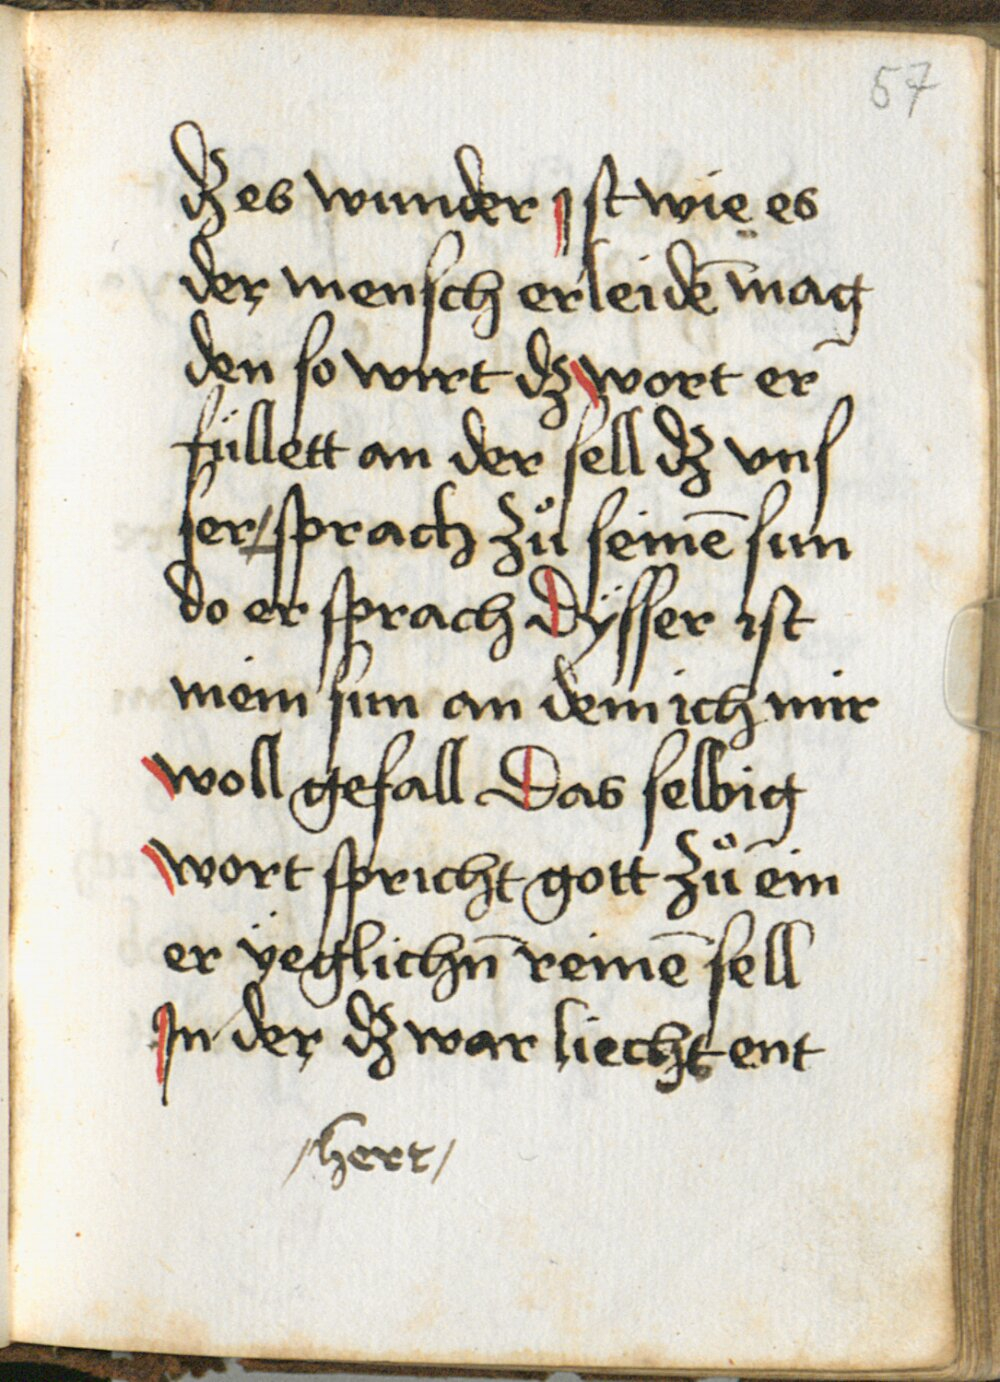 57
dz es wunder Ist wie es
der mensch erleidē mag
den so wirt dz wort er
füllett an der sell dz vns
ser / sprach zů seinē sun
do er sprach Dÿsser ist
mein sun an dem ich mir
woll gefall Das selbig
wort spricht gott zů ein
er ÿeglichn̄ reinē sell
In der dz war liecht ent
/herr/